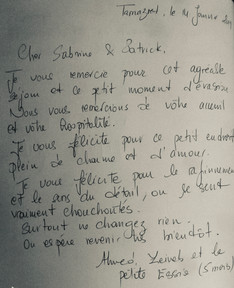 Tamazret, le 14 Janvier
Cher Sabrine & Patrick,
Je vous remercie pour cet agréable
séjour et ce petit moment d'évasion
Nous vous remercions de vôtre accueil
et vôtre hospitalité.
Je vous félicite pour ce petit endroit
plein de charme et d'amour.
Je vous félicite pour le raffinement
et le sens du détail, on se sent
vraiment chouchoutés.
Surtout ne changez rien.
On espère revenir très bientôt.
Ahmed, Zeineb et le
petite (5 mois)